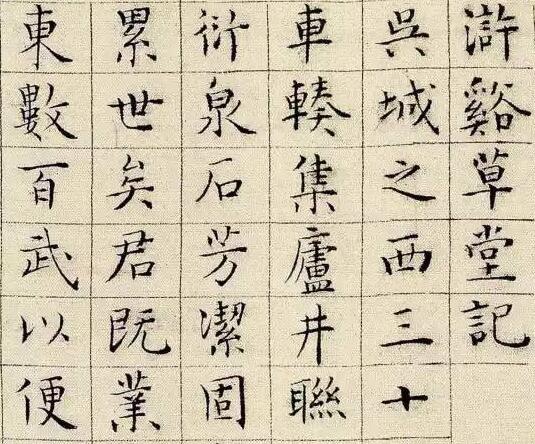 滸谿草堂記
吳城之西三十
車輳集廬井聯
衍泉石芳潔固
累世矣君既業
東數百武以便